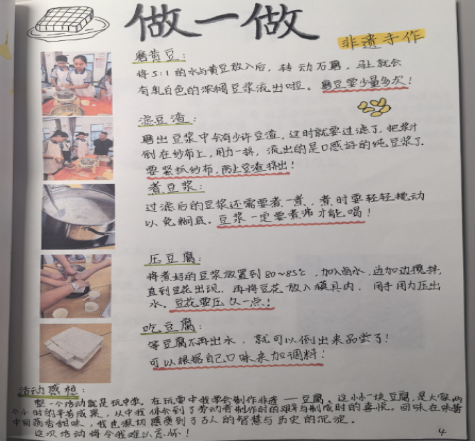 做一做
非遗手作
磨黄豆:
将5:1的水与黄豆放入后,转动石磨,马上就会
有乳白色的浓稠豆浆流出啦。磨豆要少量多次!
滤豆渣:
磨出豆浆中会有少许豆渣,这时就要过滤了。把浆汁
倒在纱布上,用力一挤,流出的是口感好的纯豆浆了。
要紧抓纱布,防止豆渣挤出!
煮豆浆:
过滤后的豆浆还需要煮一煮,煮时要轻轻搅动
以免糊底。豆浆一定要煮沸才能喝!
压豆腐:
将煮好的豆浆放置到80~85℃,加入卤水,边加边搅拌,
直到豆花出现。再将豆花放入模具内,用手用力压出
水。豆花要压久一点!
吃豆腐:
等豆腐不再出水,就可以倒出来品尝了!
可以根据自己口味来加调料!
活动感想:
整个活动就是玩中学。在玩耍中我学会制作非遗——豆腐。这小小一块豆腐,是大家两
个小时的辛苦成果,从中体会到了劳动者制作时的艰辛与制成时的喜悦。回味在咏
中回荡香甜味,我也深切感受到了古人的智慧与历史的沉淀。
这次活动将令我难以忘怀!
4